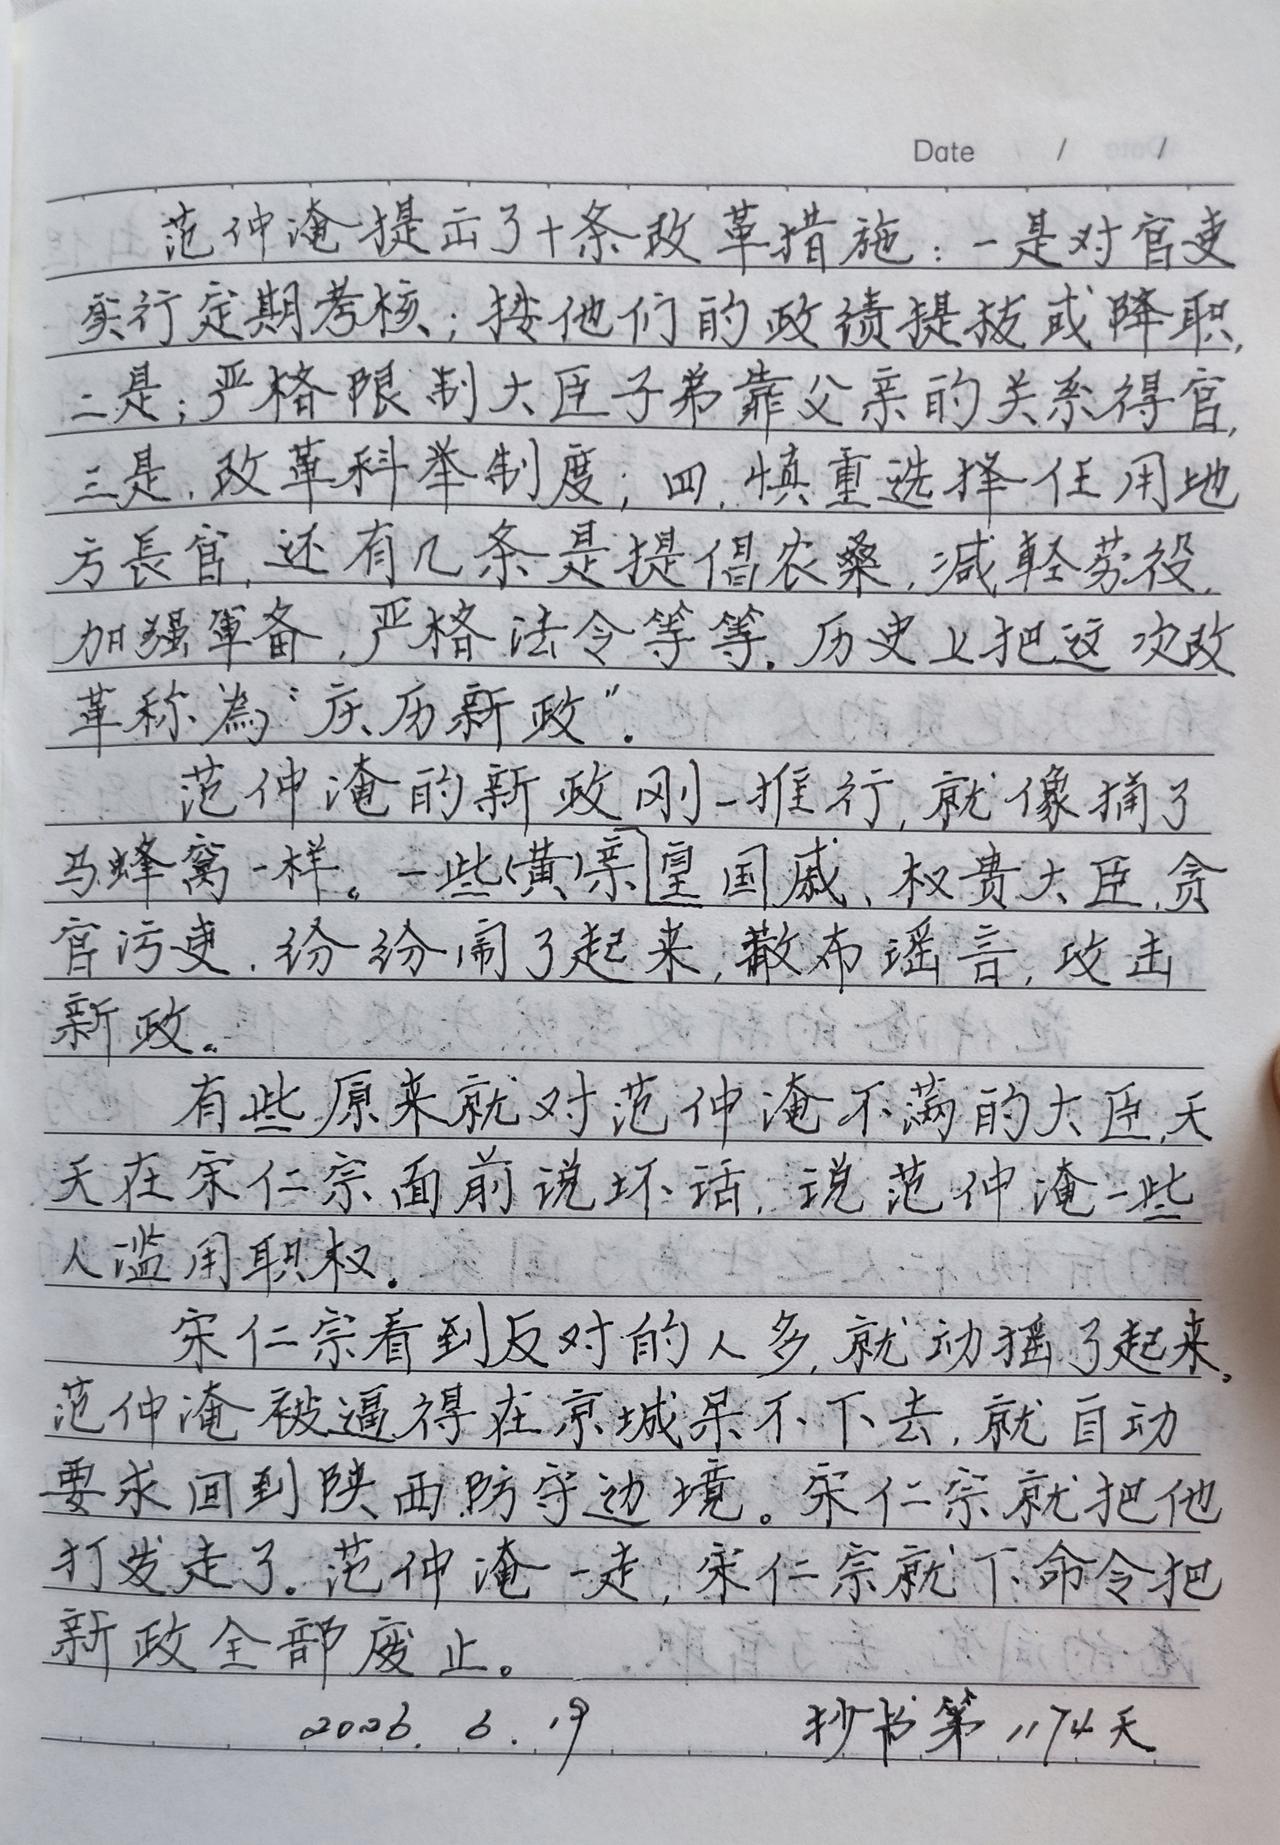 Date / /
范仲淹提出了十条改革措施：一是对官吏
实行定期考核；按他们的政绩提拔或降职，
二是；严格限制大臣子弟靠父亲的关系得官，
三是，改革科举制度；四，慎重选择任用地
方長官，还有几条是提倡农桑，减轻劳役，
加强军备，严格法令等等。历史上把这次改
革称為“庆历新政”。
范仲淹的新政刚一推行，就像捅了
马蜂窝一样。一些(黄)亲皇国戚、权贵大臣，贪
官污吏，纷纷闹了起来，散布谣言，攻击
新政。
有些原来就对范仲淹不满的大臣，天
天在宋仁宗面前说坏话，说范仲淹一些
人滥用职权。
宋仁宗看到反对的人多，就动摇了起来。
范仲淹被逼得在京城呆不下去，就自动
要求回到陕西防守边境。宋仁宗就把他
打发走了。范仲淹一走，宋仁宗就下命令把
新政全部废止。
2026.6.19 抄书第1174天